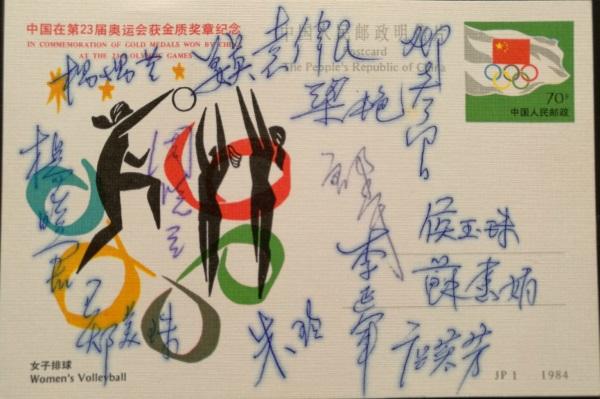 中国在第23届奥运会获金质奖章纪念
IN COMMEMORATION OF GOLD MEDALS WON BY CHINA
AT THE 23rd OLYMPIC GAMES
中国人民邮政明信片
Postcard
The People's Republic of China
70分
中国人民邮政
杨锡兰
姜英
袁伟民
梁艳
郎平
杨晓君
周晓兰
侯玉珠
李延军
苏惠娟
郑美珠
朱玲
女子排球
Women's Volleyball
JP 1 1984